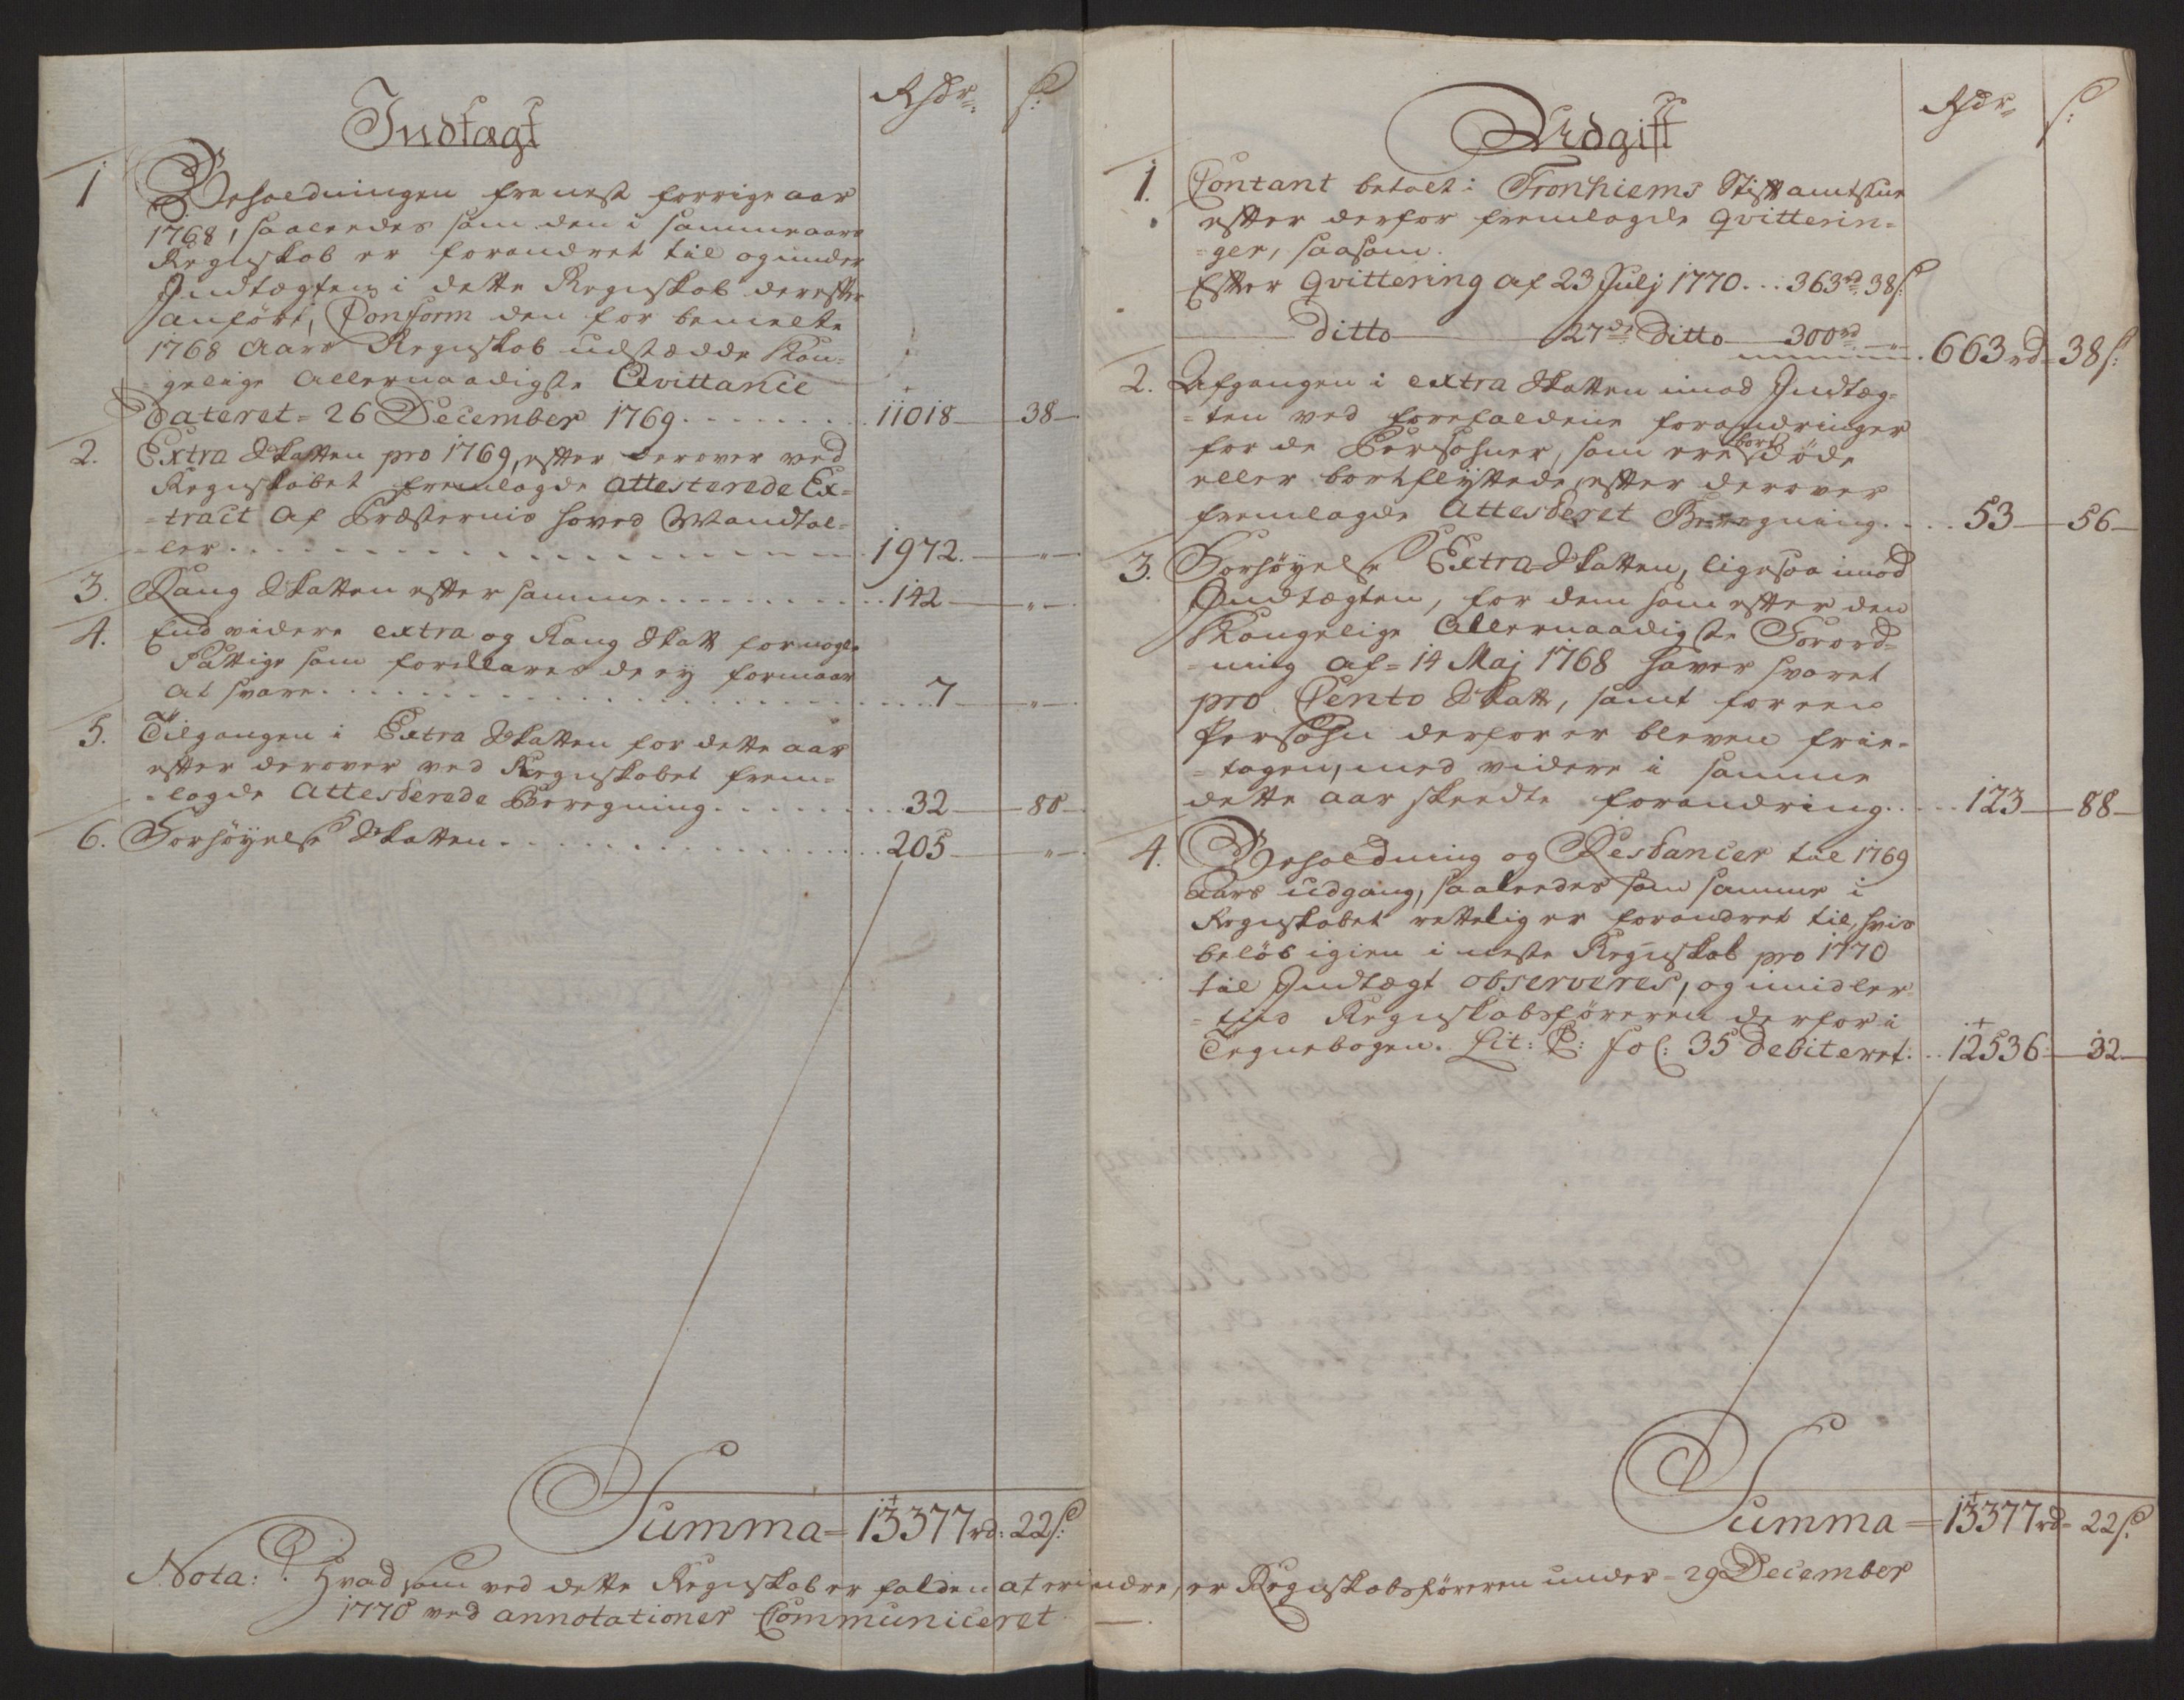 Indtægt
Rdr: s:
1 Beholdningen fra nest forrige aar
1768, saaledes som den i samme aars
Regnskab er forandret til og under
Indtægten i dette Regnskab derefter
anført, Conform den for bemelte
1768 Aars Regnskab udstædde Kon-
gelige Allernaadigste Qvittance
Dateret= 26 December 1769 . . . . . . . 11018 — 38 —
2. Extra Skatten pro 1769, efter derover ved
Regnskabet fremlagde Attesterede Ex-
=tract af Præsternis hoved Mandtal-
=ler . . . . . . . . . . . . . . 1972. — " —
3. Rang Skatten efter samme . . . . . . . . . 142 — " —
4. End videre extra og Rang Skatt for nogle
Fattige som forklares de ej formaar
at svare . . . . . . . . . . . . . . . 7 — " —
5. Tilgangen i Extra Skatten for dette aar
efter derover ved Regnskabet frem-
=lagde Attesterede Beregning . . . . . . . . 32 — 80 —
6. Forhøyelse Skatten . . . . . . . . . . . . . 205 — " —
Summa= 13377 rd: 22 s:
Udgift
Rdr: s:
1. Contant betalt i Tronhiems Stiftamtstue
efter derfor fremlagde qvitterin-
=ger, saasom.
Efter Qvittering af 23 Julj 1770 . . . 363 rd. 38 s:
— Ditto — 27de Ditto — 300 rd. — " — . 663 rd= 38 s:
2. Afgangen i extra Skatten imod Indtæg-
=ten ved forefaldene forandringer
for de Persohner, som ere bort døde
eller bortflyttede, efter derover
fremlagde Attesteret Beregning . . . . 53 — 56 —
3. Forhøyelse Extra Skatten, ligesaa imod
Indtægten, for dem som efter den
Kongelige Allernaadigste Forord=
=ning af= 14 Maj 1768 haver svaret
pro Cento Skatt, samt for een
Persohn derfor er bleven frie-
=tagen, med videre i samme
dette aar skeedte forandring . . . . 123 — 88 —
4. Beholdning og Restancer til 1769
Aars udgang, saaleedes som samme i
Regnskabet rettelig er forandret til, hvis
beløb igien i neste Regnskab pro 1770
til Indtægt observeres, og imidler-
=tiid Regnskabsføreren derfor i
Tegnebogen. Lit: C: fol: 35 debiteret . . . 12536 — 32 —
Summa = 13377 rd= 22 s:
Nota: Hvad som ved dette Regnskab er falden at erindre, er Regnskabsføreren under= 29 December
1770 ved annotationer Communiceret —